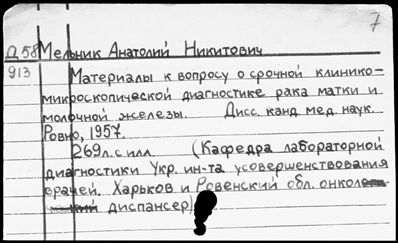 7
Д58 Мельник Анатолий Никитович
913 Материалы к вопросу о срочной клинико-
микроскопической диагностике рака матки и
молочной железы. Дисс. канд. мед. наук.
Ровно, 1957.
269л. с илл. (Кафедра лабораторной
диагностики Укр. ин-та усовершенствования
врачей. Харьков и Ровенский обл. онкол
диспансер)